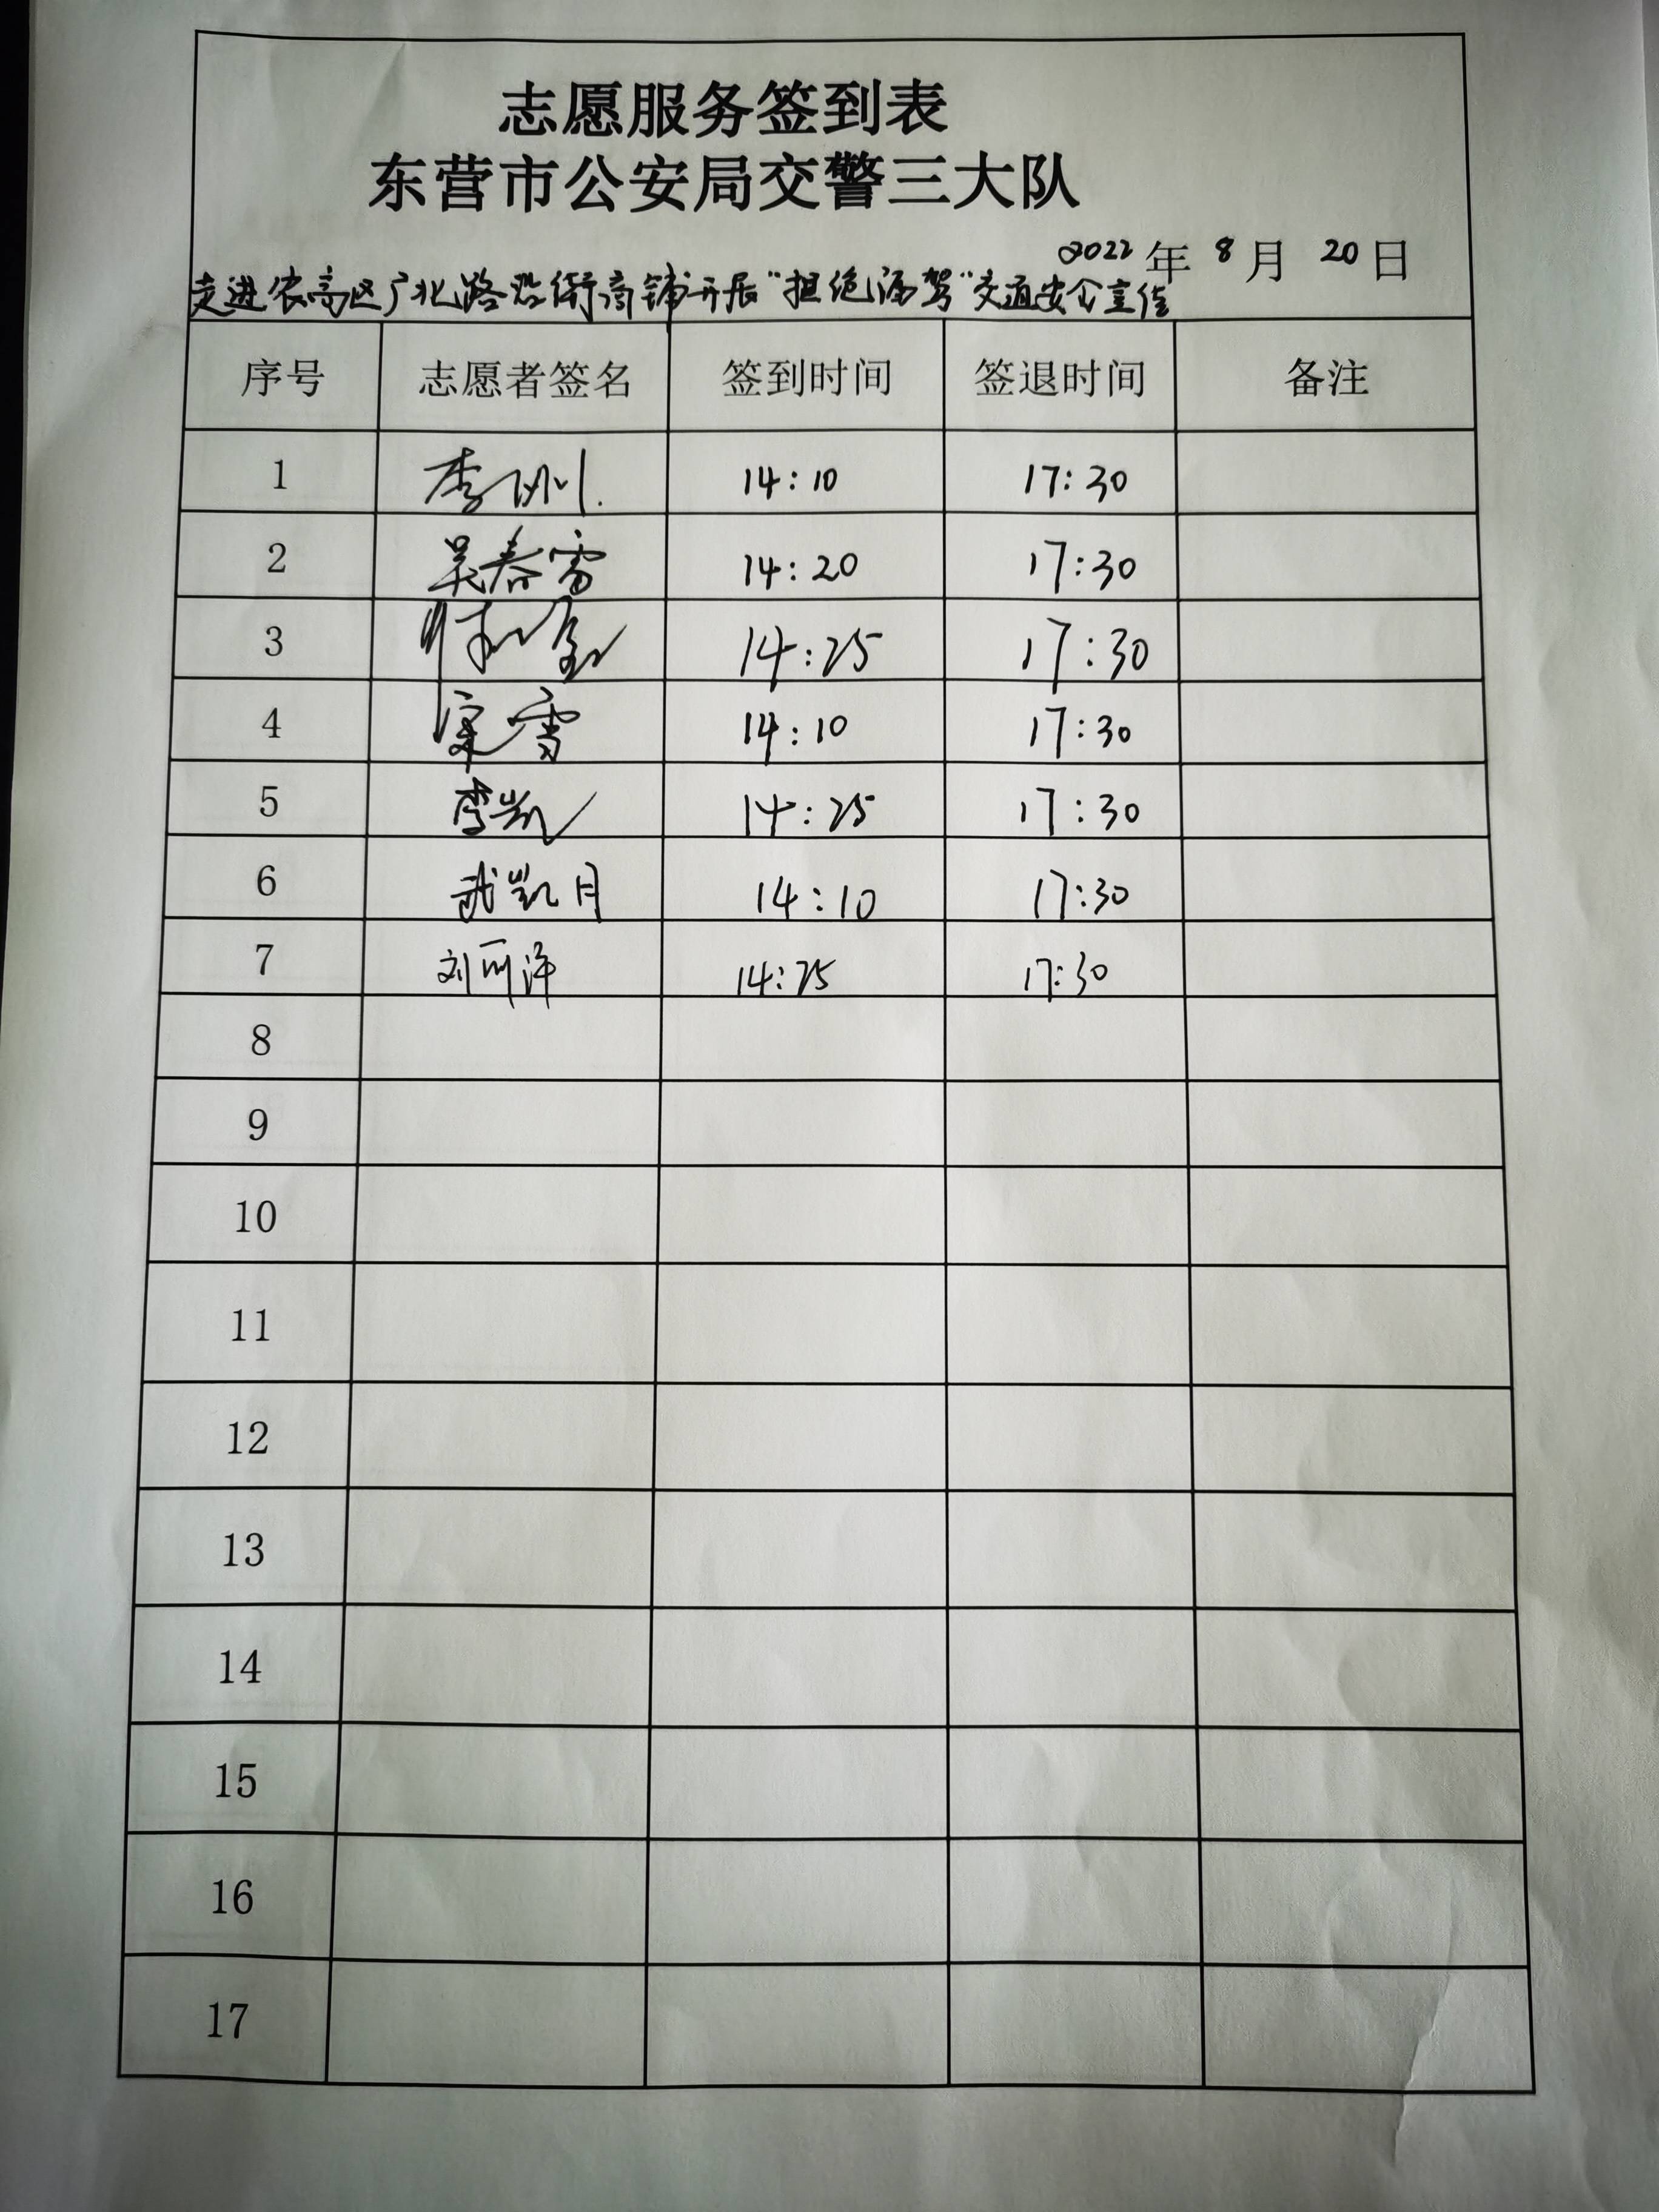 志愿服务签到表
东营市公安局交警三大队
2022 年 8 月 20 日
走进农高区广北路沿街商铺开展"拒绝酒驾"交通安全宣传
序号 志愿者签名 签到时间 签退时间 备注
1 李 14:10 17:30
2 吴春雷 14:20 17:30
3 14:25 17:30
4 宋雪 14:10 17:30
5 李凯 14:25 17:30
6 武凯月 14:10 17:30
7 刘丽萍 14:25 17:30
8
9
10
11
12
13
14
15
16
17